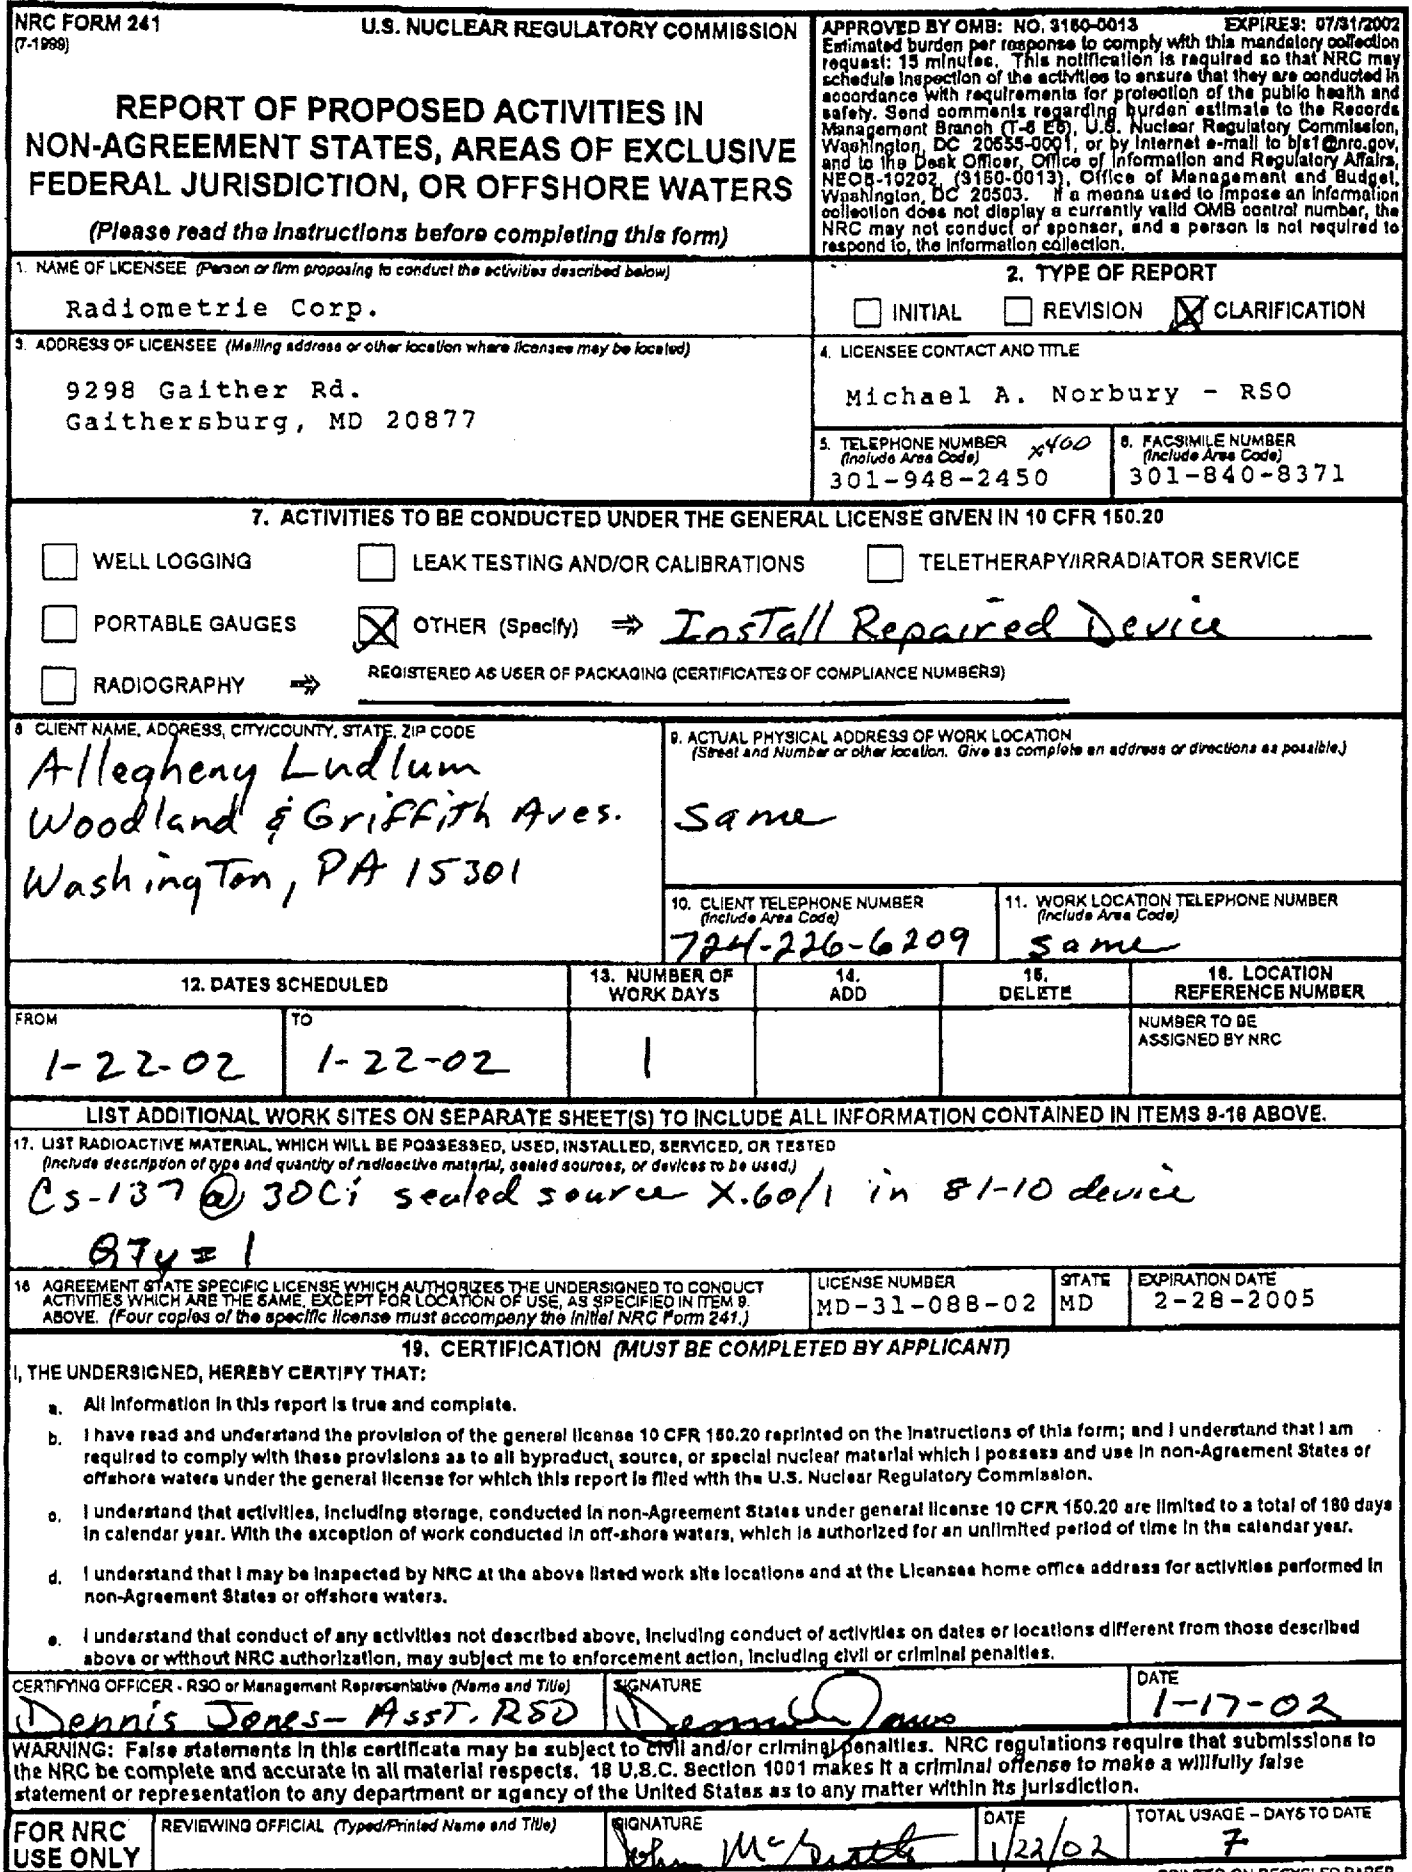 NRC FORM 241
(7-1999)
U.S. NUCLEAR REGULATORY COMMISSION
REPORT OF PROPOSED ACTIVITIES IN
NON-AGREEMENT STATES, AREAS OF EXCLUSIVE
FEDERAL JURISDICTION, OR OFFSHORE WATERS
(Please read the instructions before completing this form)
APPROVED BY OMB: NO. 3150-0013 EXPIRES: 07/31/2002
Estimated burden per response to comply with this mandatory collection
request: 15 minutes. This notification is required so that NRC may
schedule inspection of the activities to ensure that they are conducted in
accordance with requirements for protection of the public health and
safety. Send comments regarding burden estimate to the Records
Management Branch (T-6 E6), U.S. Nuclear Regulatory Commission,
Washington, DC 20555-0001, or by Internet e-mail to bjs1@nrc.gov,
and to the Desk Officer, Office of Information and Regulatory Affairs,
NEOB-10202, (3150-0013), Office of Management and Budget,
Washington, DC 20503. If a means used to impose an information
collection does not display a currently valid OMB control number, the
NRC may not conduct or sponsor, and a person is not required to
respond to, the information collection.
1. NAME OF LICENSEE (Person or firm proposing to conduct the activities described below)
Radiometrie Corp.
2. TYPE OF REPORT
INITIAL REVISION CLARIFICATION
3. ADDRESS OF LICENSEE (Mailing address or other location where licensee may be located)
9298 Gaither Rd.
Gaithersburg, MD 20877
4. LICENSEE CONTACT AND TITLE
Michael A. Norbury - RSO
5. TELEPHONE NUMBER
(Include Area Code)
x400
301-948-2450
6. FACSIMILE NUMBER
(Include Area Code)
301-840-8371
7. ACTIVITIES TO BE CONDUCTED UNDER THE GENERAL LICENSE GIVEN IN 10 CFR 150.20
WELL LOGGING LEAK TESTING AND/OR CALIBRATIONS TELETHERAPY/IRRADIATOR SERVICE
PORTABLE GAUGES OTHER (Specify) ⇒ Install Repaired Device
RADIOGRAPHY ⇒ REGISTERED AS USER OF PACKAGING (CERTIFICATES OF COMPLIANCE NUMBERS)
8 CLIENT NAME, ADDRESS, CITY/COUNTY, STATE, ZIP CODE
Allegheny Ludlum
Woodland & Griffith Aves.
Washington, PA 15301
9. ACTUAL PHYSICAL ADDRESS OF WORK LOCATION
(Street and Number or other location. Give as complete an address or directions as possible.)
same
10. CLIENT TELEPHONE NUMBER
(Include Area Code)
724-226-6209
11. WORK LOCATION TELEPHONE NUMBER
(Include Area Code)
same
12. DATES SCHEDULED
13. NUMBER OF
WORK DAYS
14.
ADD
15.
DELETE
16. LOCATION
REFERENCE NUMBER
FROM
1-22-02
TO
1-22-02
1
NUMBER TO BE
ASSIGNED BY NRC
LIST ADDITIONAL WORK SITES ON SEPARATE SHEET(S) TO INCLUDE ALL INFORMATION CONTAINED IN ITEMS 8-16 ABOVE.
17. LIST RADIOACTIVE MATERIAL, WHICH WILL BE POSSESSED, USED, INSTALLED, SERVICED, OR TESTED
(Include description of type and quantity of radioactive material, sealed sources, or devices to be used.)
Cs-137 @ 30Ci sealed source X.60/1 in 81-10 device
QTy = 1
18 AGREEMENT STATE SPECIFIC LICENSE WHICH AUTHORIZES THE UNDERSIGNED TO CONDUCT
ACTIVITIES WHICH ARE THE SAME, EXCEPT FOR LOCATION OF USE, AS SPECIFIED IN ITEM 9.
ABOVE. (Four copies of the specific license must accompany the initial NRC Form 241.)
LICENSE NUMBER
MD-31-088-02
STATE
MD
EXPIRATION DATE
2-28-2005
19. CERTIFICATION (MUST BE COMPLETED BY APPLICANT)
I, THE UNDERSIGNED, HEREBY CERTIFY THAT:
a. All information in this report is true and complete.
b. I have read and understand the provision of the general license 10 CFR 150.20 reprinted on the instructions of this form; and I understand that I am
required to comply with these provisions as to all byproduct, source, or special nuclear material which I possess and use in non-Agreement States or
offshore waters under the general license for which this report is filed with the U.S. Nuclear Regulatory Commission.
c. I understand that activities, including storage, conducted in non-Agreement States under general license 10 CFR 150.20 are limited to a total of 180 days
in calendar year. With the exception of work conducted in off-shore waters, which is authorized for an unlimited period of time in the calendar year.
d. I understand that I may be inspected by NRC at the above listed work site locations and at the Licensee home office address for activities performed in
non-Agreement States or offshore waters.
e. I understand that conduct of any activities not described above, including conduct of activities on dates or locations different from those described
above or without NRC authorization, may subject me to enforcement action, including civil or criminal penalties.
CERTIFYING OFFICER - RSO or Management Representative (Name and Title)
Dennis Jones- Asst. RSO
SIGNATURE
Dennis Jones
DATE
1-17-02
WARNING: False statements in this certificate may be subject to civil and/or criminal penalties. NRC regulations require that submissions to
the NRC be complete and accurate in all material respects. 18 U.S.C. Section 1001 makes it a criminal offense to make a willfully false
statement or representation to any department or agency of the United States as to any matter within its jurisdiction.
FOR NRC
USE ONLY
REVIEWING OFFICIAL (Typed/Printed Name and Title)
SIGNATURE
John McGrath
DATE
1/22/02
TOTAL USAGE - DAYS TO DATE
7
PRINTED ON RECYCLED PAPER